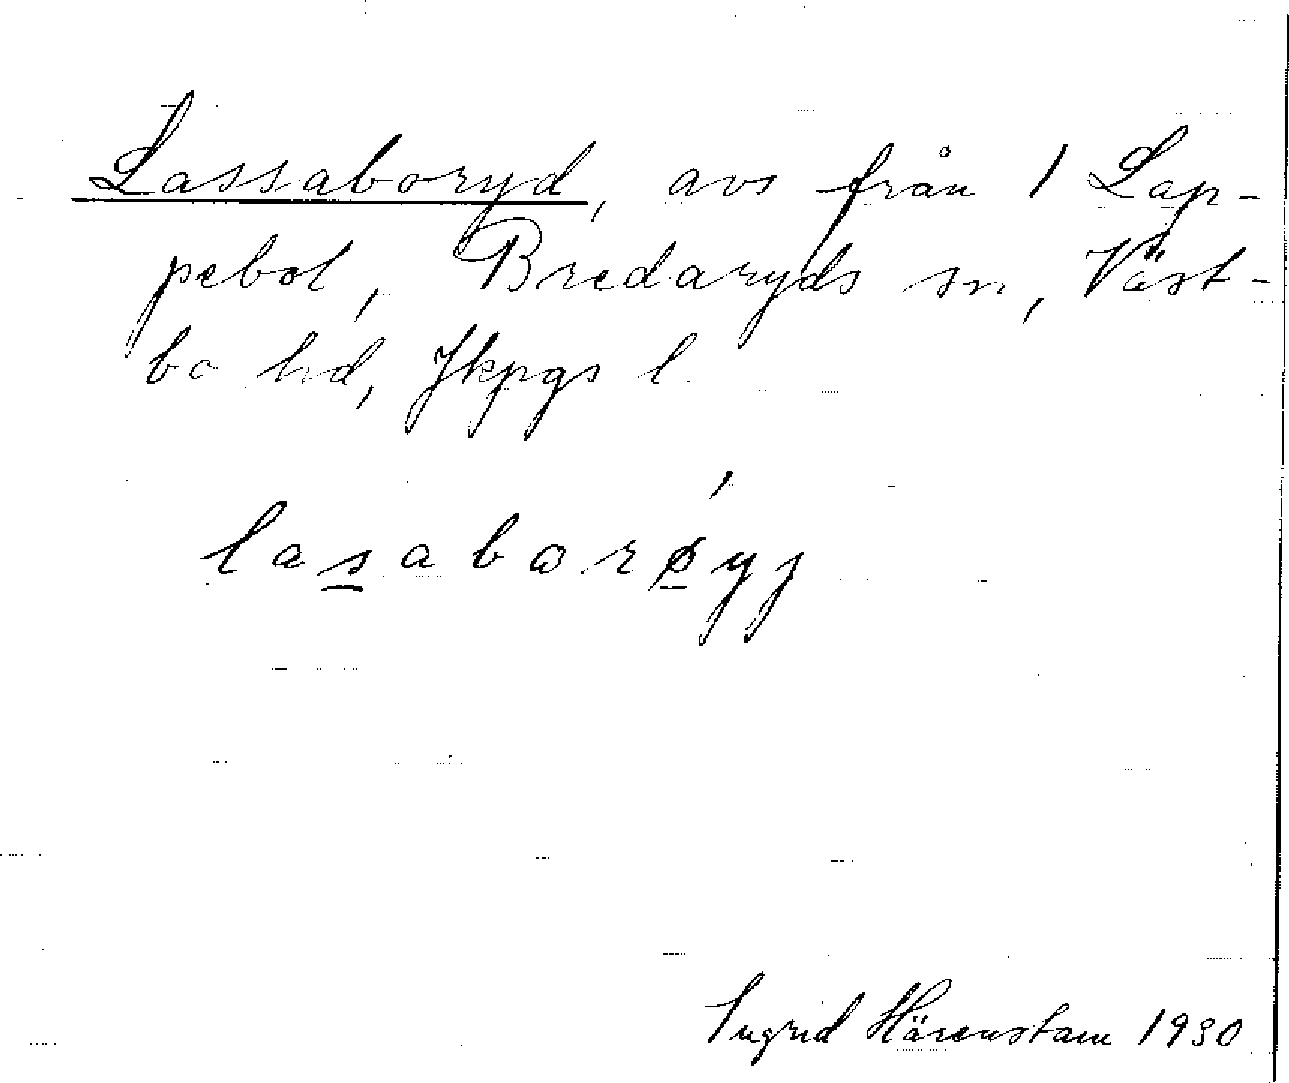 Lassaboryd, avs från 1 Lap-
pebol, Bredaryds sn, Väst-
bo hd, Jkpgs l.
Ingrid Härenstam 1930